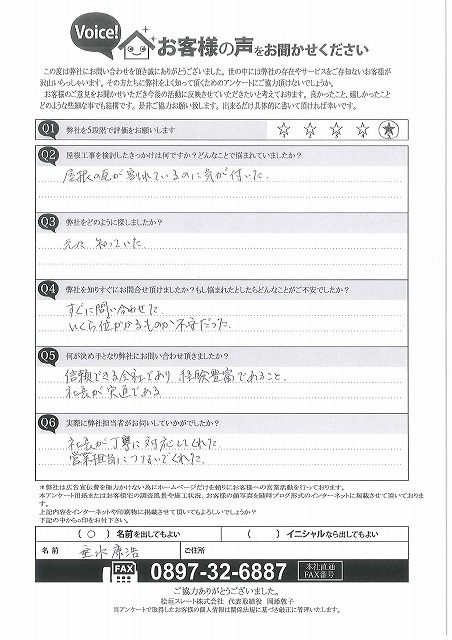 Voice!
お客様の声をお聞かせください
この度は弊社にお問い合わせを頂き誠にありがとうございました。世の中には弊社の存在やサービスをご存知ないお客様が
沢山いらっしゃいます。その方たちに弊社をよく知って頂くためのアンケートにご協力頂けないでしょうか。
お客様のご意見をお聞かせいただき今後の活動に反映させていただきたいと考えております。良かったこと、嬉しかったこと
どのような些細な事でも結構です。是非ご協力お願い致します。出来るだけ具体的に書いて頂ければ幸いです。
Q1 弊社を5段階で評価をお願いします
1 2 3 4 5
Q2 屋根工事を検討したきっかけは何ですか?どんなことで悩まれていましたか?
屋根の瓦が割れているのに気が付いた。
Q3 弊社をどのように探しましたか?
元々知っていた
Q4 弊社を知りすぐにお問合せ頂けましたか?もし悩まれたとしたらどんなことがご不安でしたか?
すぐに問い合わせた
いくら位かかるものか不安だった。
Q5 何が決め手となり弊社にお問い合わせ頂きましたか?
信頼できる会社であり、経験豊富であること。
社長が実直である
Q6 実際に弊社担当者がお伺いしていかがでしたか?
社長が丁寧に対応してくれた。
営業担当につないでくれた。
*弊社は広告宣伝費を極力かけない為にホームページだけを頼りにお客様への営業活動を行っております。
本アンケート用紙またはお客様宅の調査風景や施工状況、お客様の顔写真を随時ブログ形式のインターネットに掲載させて頂いております。
上記内容をインターネットや印刷物に掲載させて頂いてもよろしいでしょうか?
下記の中から○印をお付下さい。
( ○ ) 名前を出してもよい ( ) イニシャルなら出してもよい
名前 垂水 康浩 ご住所
FAX 0897-32-6887 本社直通 FAX番号
ご協力ありがとうございました。
桧垣スレート株式会社 代表取締役 岡添敦子
当アンケートで取得したお客様の個人情報は関係法規に基づき厳正に管理いたします。